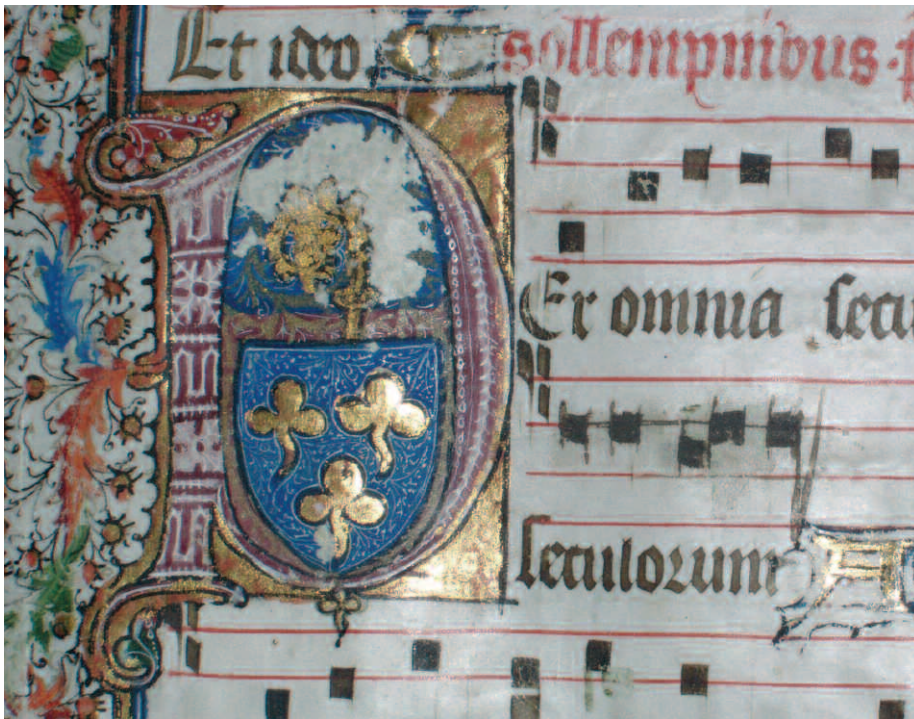 Et ideo
sollempnibus · p
Per omnia secu
seculorum A